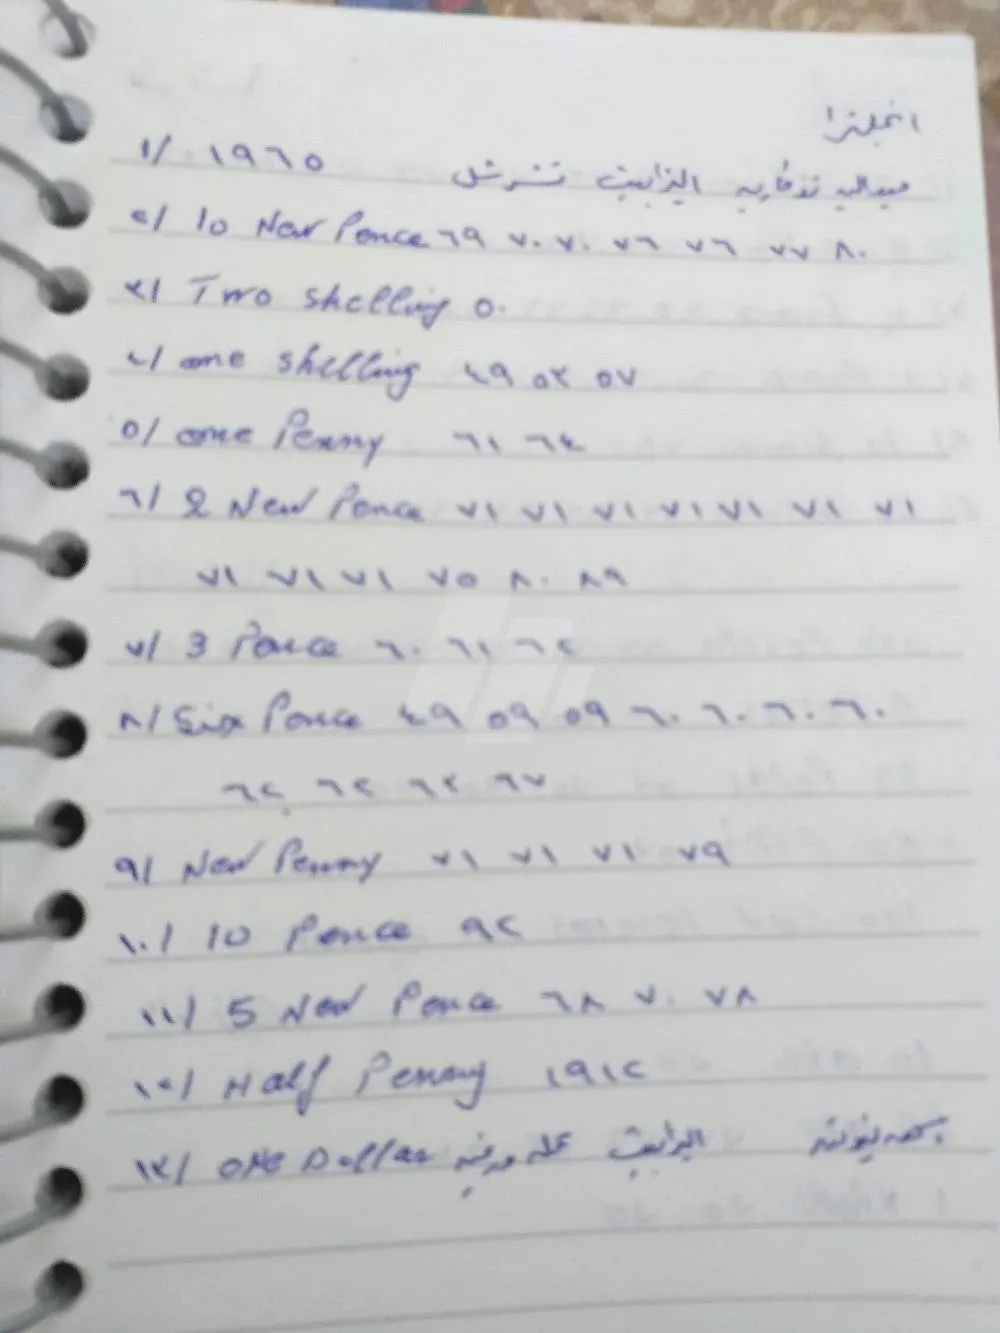 انجلترا
١/ ١٩٦٥ ميداليه تذكاريه اليزابيث تشرشل
٢/ 10 New Pence ٦٩ ٧٠ ٧٠ ٧٦ ٧٦ ٧٧ ٨٠
٣/ Two shelling ٥٠
٤/ one shelling ٤٩ ٥٣ ٥٧
٥/ one Penny ٦١ ٦٤
٦/ 2 New Pence ٧١ ٧١ ٧١ ٧١ ٧١ ٧١ ٧١
٧١ ٧١ ٧١ ٧٥ ٨٠ ٨٩
٧/ 3 Pence ٦٠ ٦١ ٦٢
٨/ Six Pence ٤٩ ٥٩ ٥٩ ٦٠ ٦٠ ٦٠ ٦٠
٦٢ ٦٢ ٦٣ ٦٧
٩/ New Penny ٧١ ٧١ ٧١ ٧٩
١٠/ 10 Pence ٩٢
١١/ 5 New Pence ٦٨ ٧٠ ٧٨
١٢/ Half Penny ١٩١٢
١٣/ ONE Dollar عمله ورقيه اليزابيث